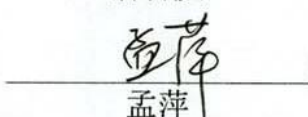 孟萍
孟萍